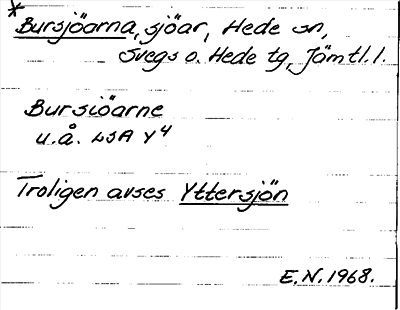 *
Bursjöarna, sjöar, Hede sn,
Svegs o. Hede tg, Jämtl. l.
Bursiöarne
u.å. LSA Y4
Troligen avses Yttersjön
E.N. 1968.